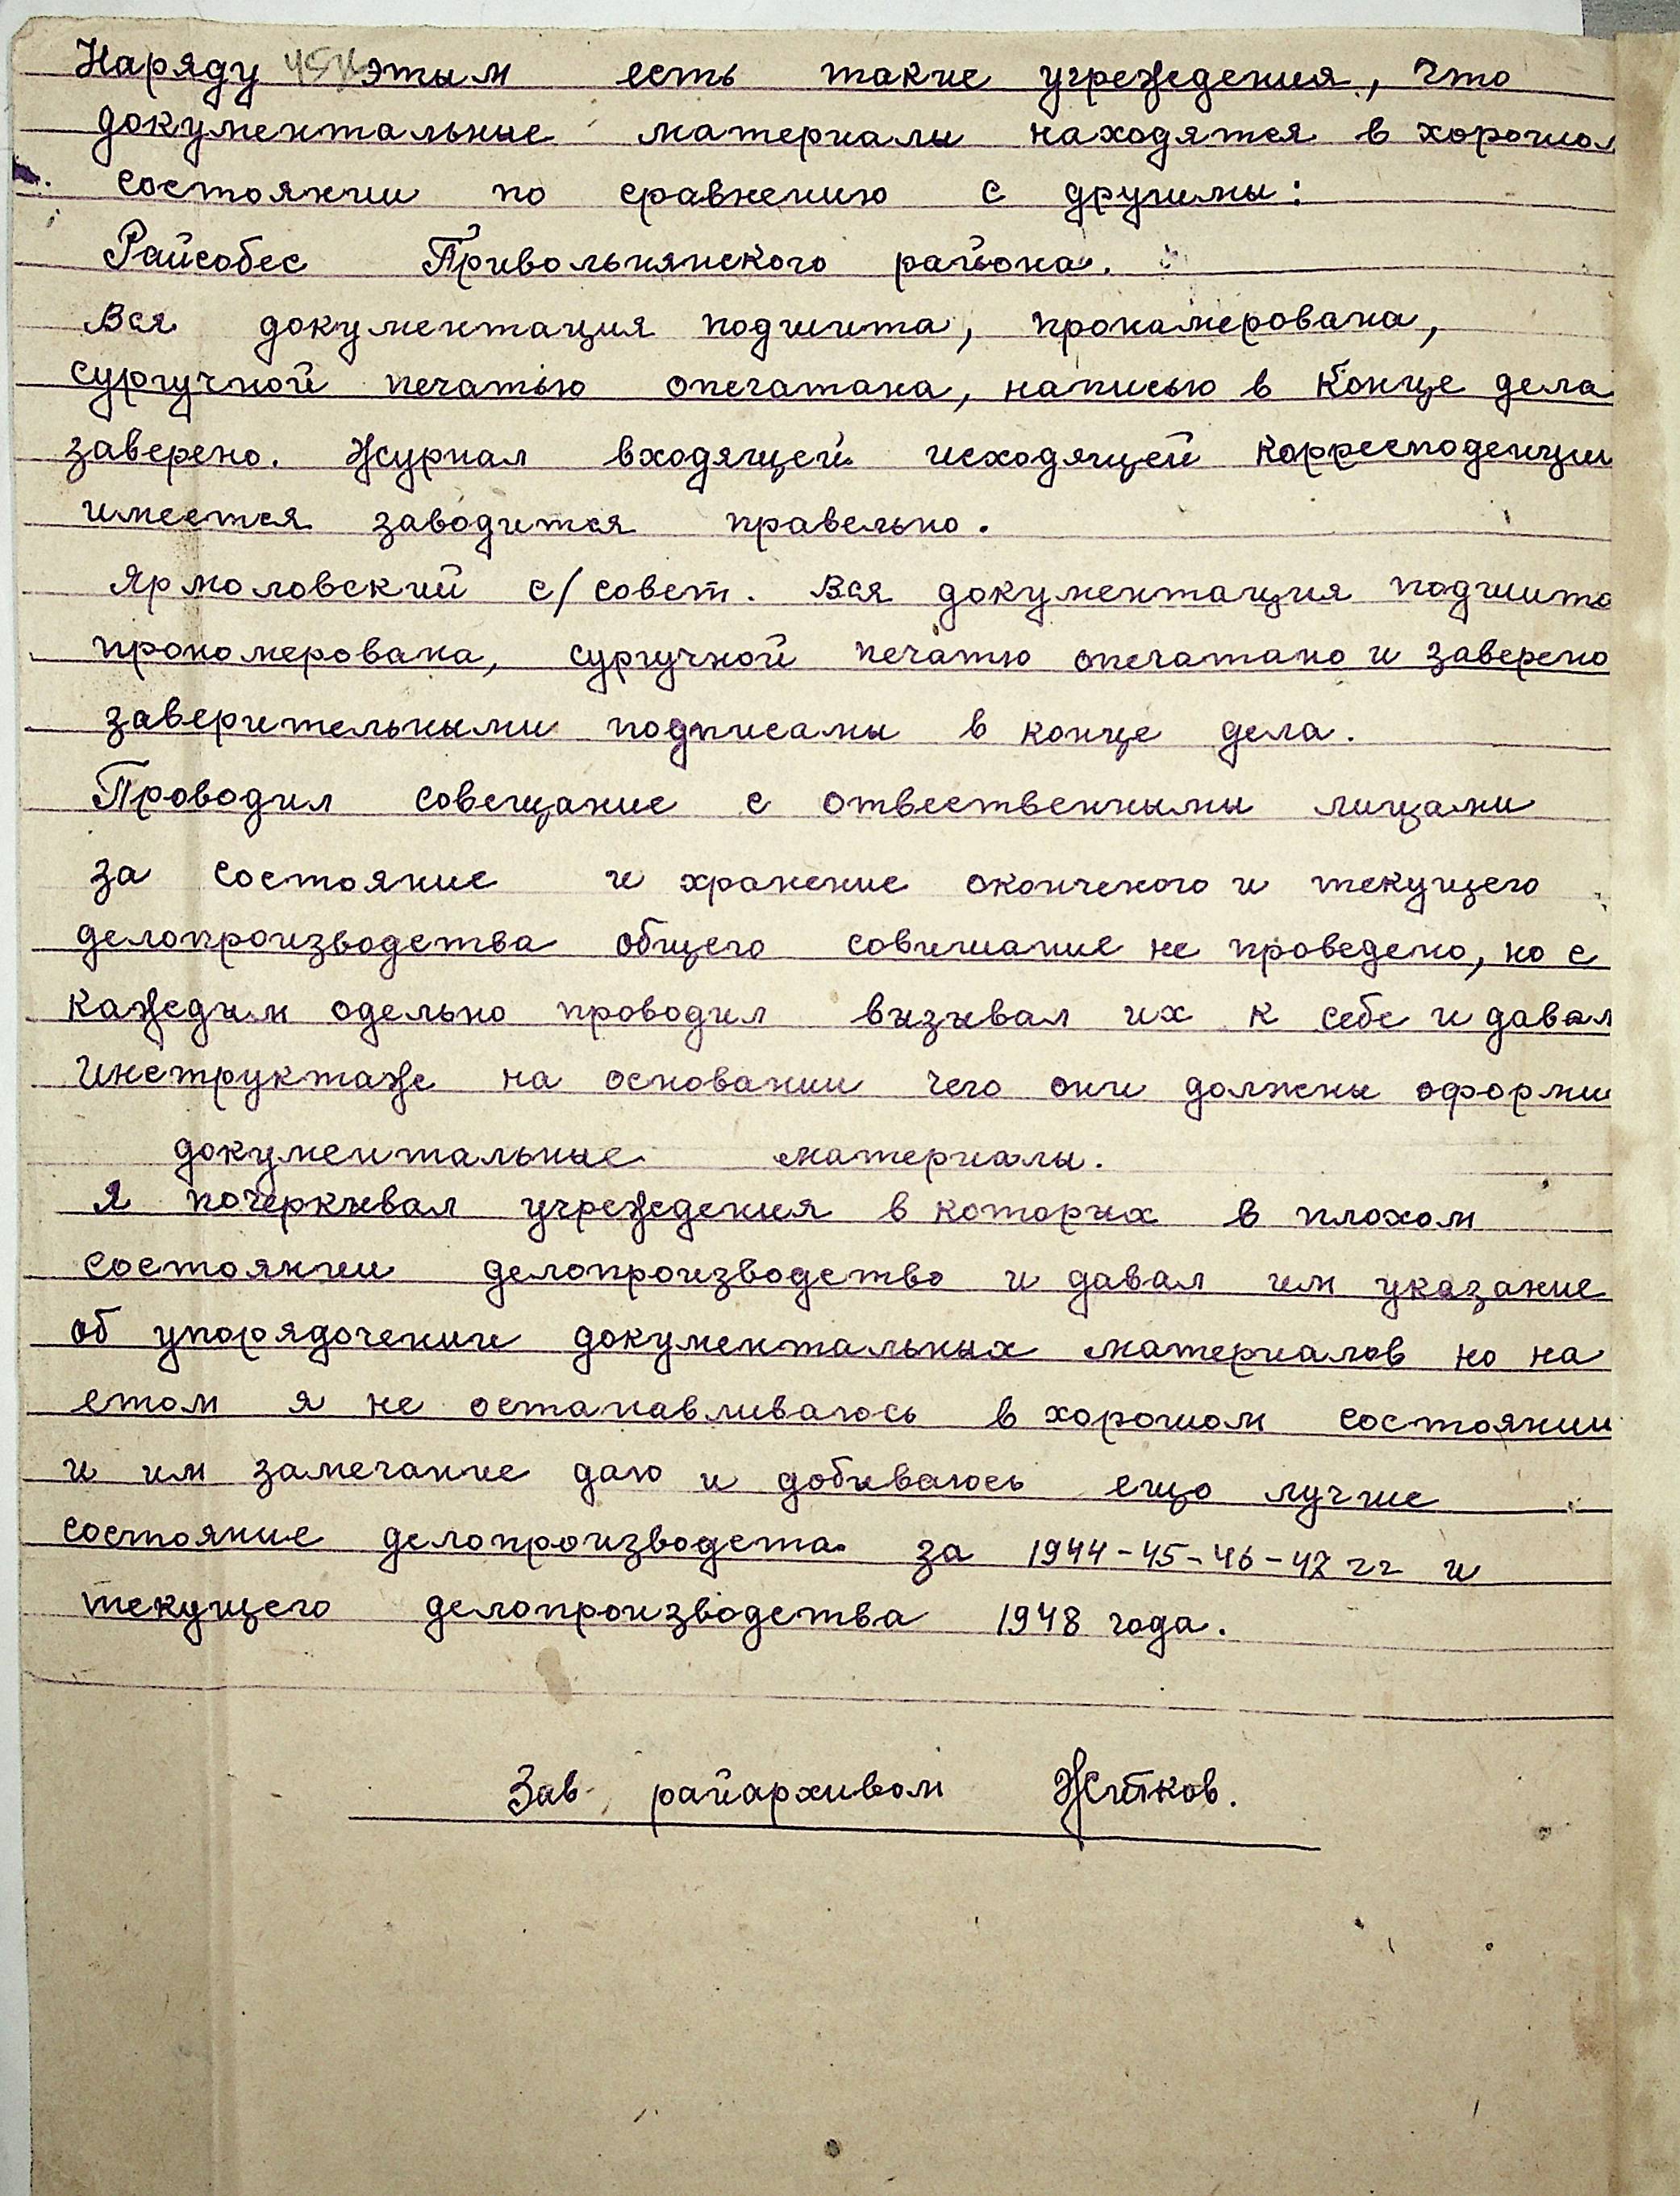 Наряду этым есть такие учреждения, что
документальные материалы находятся в хорошом
состоянии по сравнению с другимы:
Райсобес Привольнянского района.
Вся документация подшита, пронамерована,
сургучной печатью опечатана, написью в конце дела
заверено. Журнал входящей исходящей корресподенции
имеется заводится правельно.
Ярмоловский с/совет. Вся документация подшита
прономерована, сургучной печатю опечатано и заверено
заверительными подписамы в конце дела.
Проводил совещание с отвественнымы лицами
за состояние и хранение оконченого и текущего
делопроизводства общего совишание не проведено, но с
каждим одельно проводил визивал их к себе и давал
инструктаже на основании чего они должны оформи
документальные материалы.
Я почеркивал учреждения в которих в плохом
состоянии делопроизводство и давал им указание
об упорядочении документальных материалов но на
етом я не останавливаюсь в хорошом состоянии
и им замечание даю и добиваюсь ещо лучше
состояние делопроизводста за 1944-45-46-47 гг и
текущего делопроизводства 1948 года.
Зав райархивом Житков.